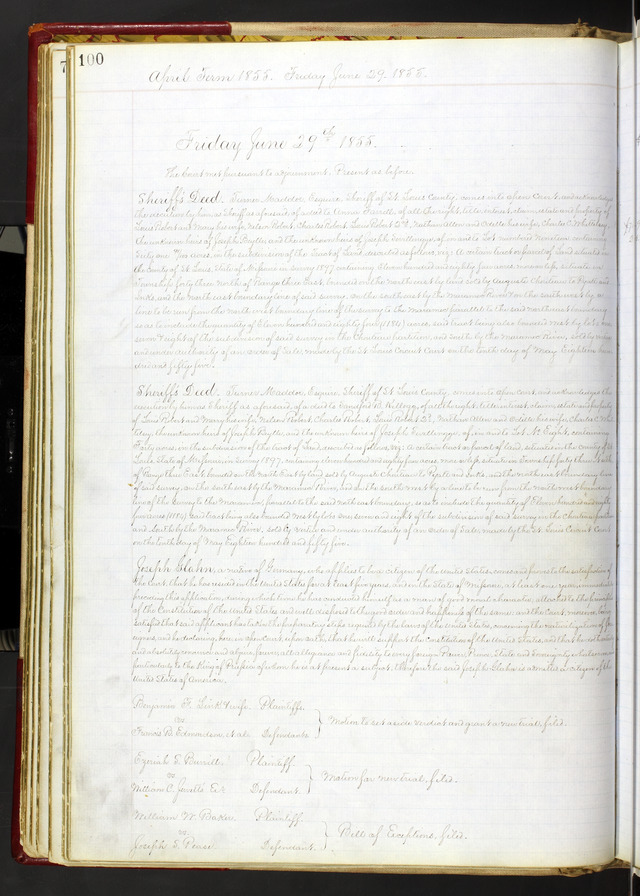 100
7
April Term 1855. Friday June 29. 1855.
Friday June 29th 1855.
The Court met pursuant to adjournment. Present as before.
Sheriff's Deed. Turner Maddox, Esquire, Sheriff of St. Louis County, comes into open Court, and acknowledges
the execution by him as Sheriff as aforesaid, of a deed to of all the right, title, interest, claim, estate and property of
Louis Robert and Mary his wife, Nelson Robert, Charles Robert, Louis Robert Jr., Nathan Allen and his wife, Charles C. Whittlesey,
the unknown heirs of Joseph and the unknown heirs of Joseph of, in and to Lot numbered Nineteen containing
Forty one acres, in the subdivision of the tract of land, described as follows, viz: A certain tract or parcel of land situated in
the County of St. Louis, State of Missouri in Survey 1897 containing Eleven hundred and eighty four acres, more or less, situate in
Township forty three North of Range three East, bounded on the north east by land sold by Auguste Chouteau to
and the north east boundary line of said survey, on the south east by the Maramec River, on the south west by a
line to be run from the north west boundary line of the survey to the Maramec parallel to the said north east boundary
so as to include the quantity of Eleven hundred and eighty four (1184) acres, said tract being also bounded west by lots
seven & eight of the subdivision of said survey in the Chouteau partition, and south by the Maramec River, sold by virtue
and under authority of an order of sale, made by the St. Louis Circuit Court on the tenth day of May Eighteen hun-
dred and fifty five.
Sheriff's Deed. Turner Maddox, Esquire, Sheriff of St. Louis County, comes into open Court, and acknowledges the
execution by him as Sheriff as aforesaid, of a deed to Kellogg, of all the right, title, interest, claim, estate and property
of Louis Robert and Mary his wife, Nelson Robert, Charles Robert, Louis Robert Jr., Nathan Allen and his wife, Charles C. Whit-
tlesey, the unknown heirs of Joseph and the unknown heirs of Joseph of, in and to Lot No. Eight, containing
Forty acres, in the subdivision of the tract of land, described as follows, viz: A certain tract or parcel of land, situated in the County of St.
Louis, State of Missouri, in Survey 1897, containing Eleven hundred and eighty four acres, more or less, situate in Township forty three North
of Range three East, bounded on the north East by land sold by Auguste Chouteau to and the north east boundary line
of said survey, on the south east by the Maramec River, and on the south west by a line to be run from the north west boundary
line of the survey to the Maramec, parallel to the said north east boundary, so as to include the quantity of Eleven hundred and eighty
four acres (1184) said tract being also bounded west by lots seven and eight of the subdivision of said survey in the Chouteau partition
and south by the Maramec River, sold by virtue and under authority of an order of sale, made by the St. Louis Circuit Court
on the tenth day of May Eighteen hundred and fifty five.
Joseph Clahn, a native of Germany, who applies to be a citizen of the United States, comes and proves to the satisfaction of
the Court, that he has resided in the United States for at least five years, and in the State of Missouri, at least one year, immediately
preceding this application, during which time he has conducted himself as a man of good moral character, attached to the principles
of the Constitution of the United States, and well disposed to the good order and happiness of the same; and the Court moreover being
satisfied that said applicant has taken the preparatory steps required by the laws of the United States, concerning the naturalization of For-
eigners, and he declaring here in open Court, upon oath, that he will support the Constitution of the United States, and that he doth entirely
and absolutely renounce and abjure forever, all allegiance and fidelity to every foreign Power, Prince, State and Sovereignty whatsoever, and
particularly to the King of Prussia of whom he is at present a subject, therefore the said Joseph Clahn is admitted a citizen of the
United States of America.
Benjamin F. Link & wife Plaintiffs
vs
Francis B. Edmondson et als Defendants
} Motion to set aside verdict and grant a new trial, filed.
Plaintiff
vs
William C. Jewett Exr Defendant.
} Motion for new trial, filed.
William W. Baker Plaintiff
vs.
Joseph S. Pease Defendant.
} Bill of Exceptions, filed.